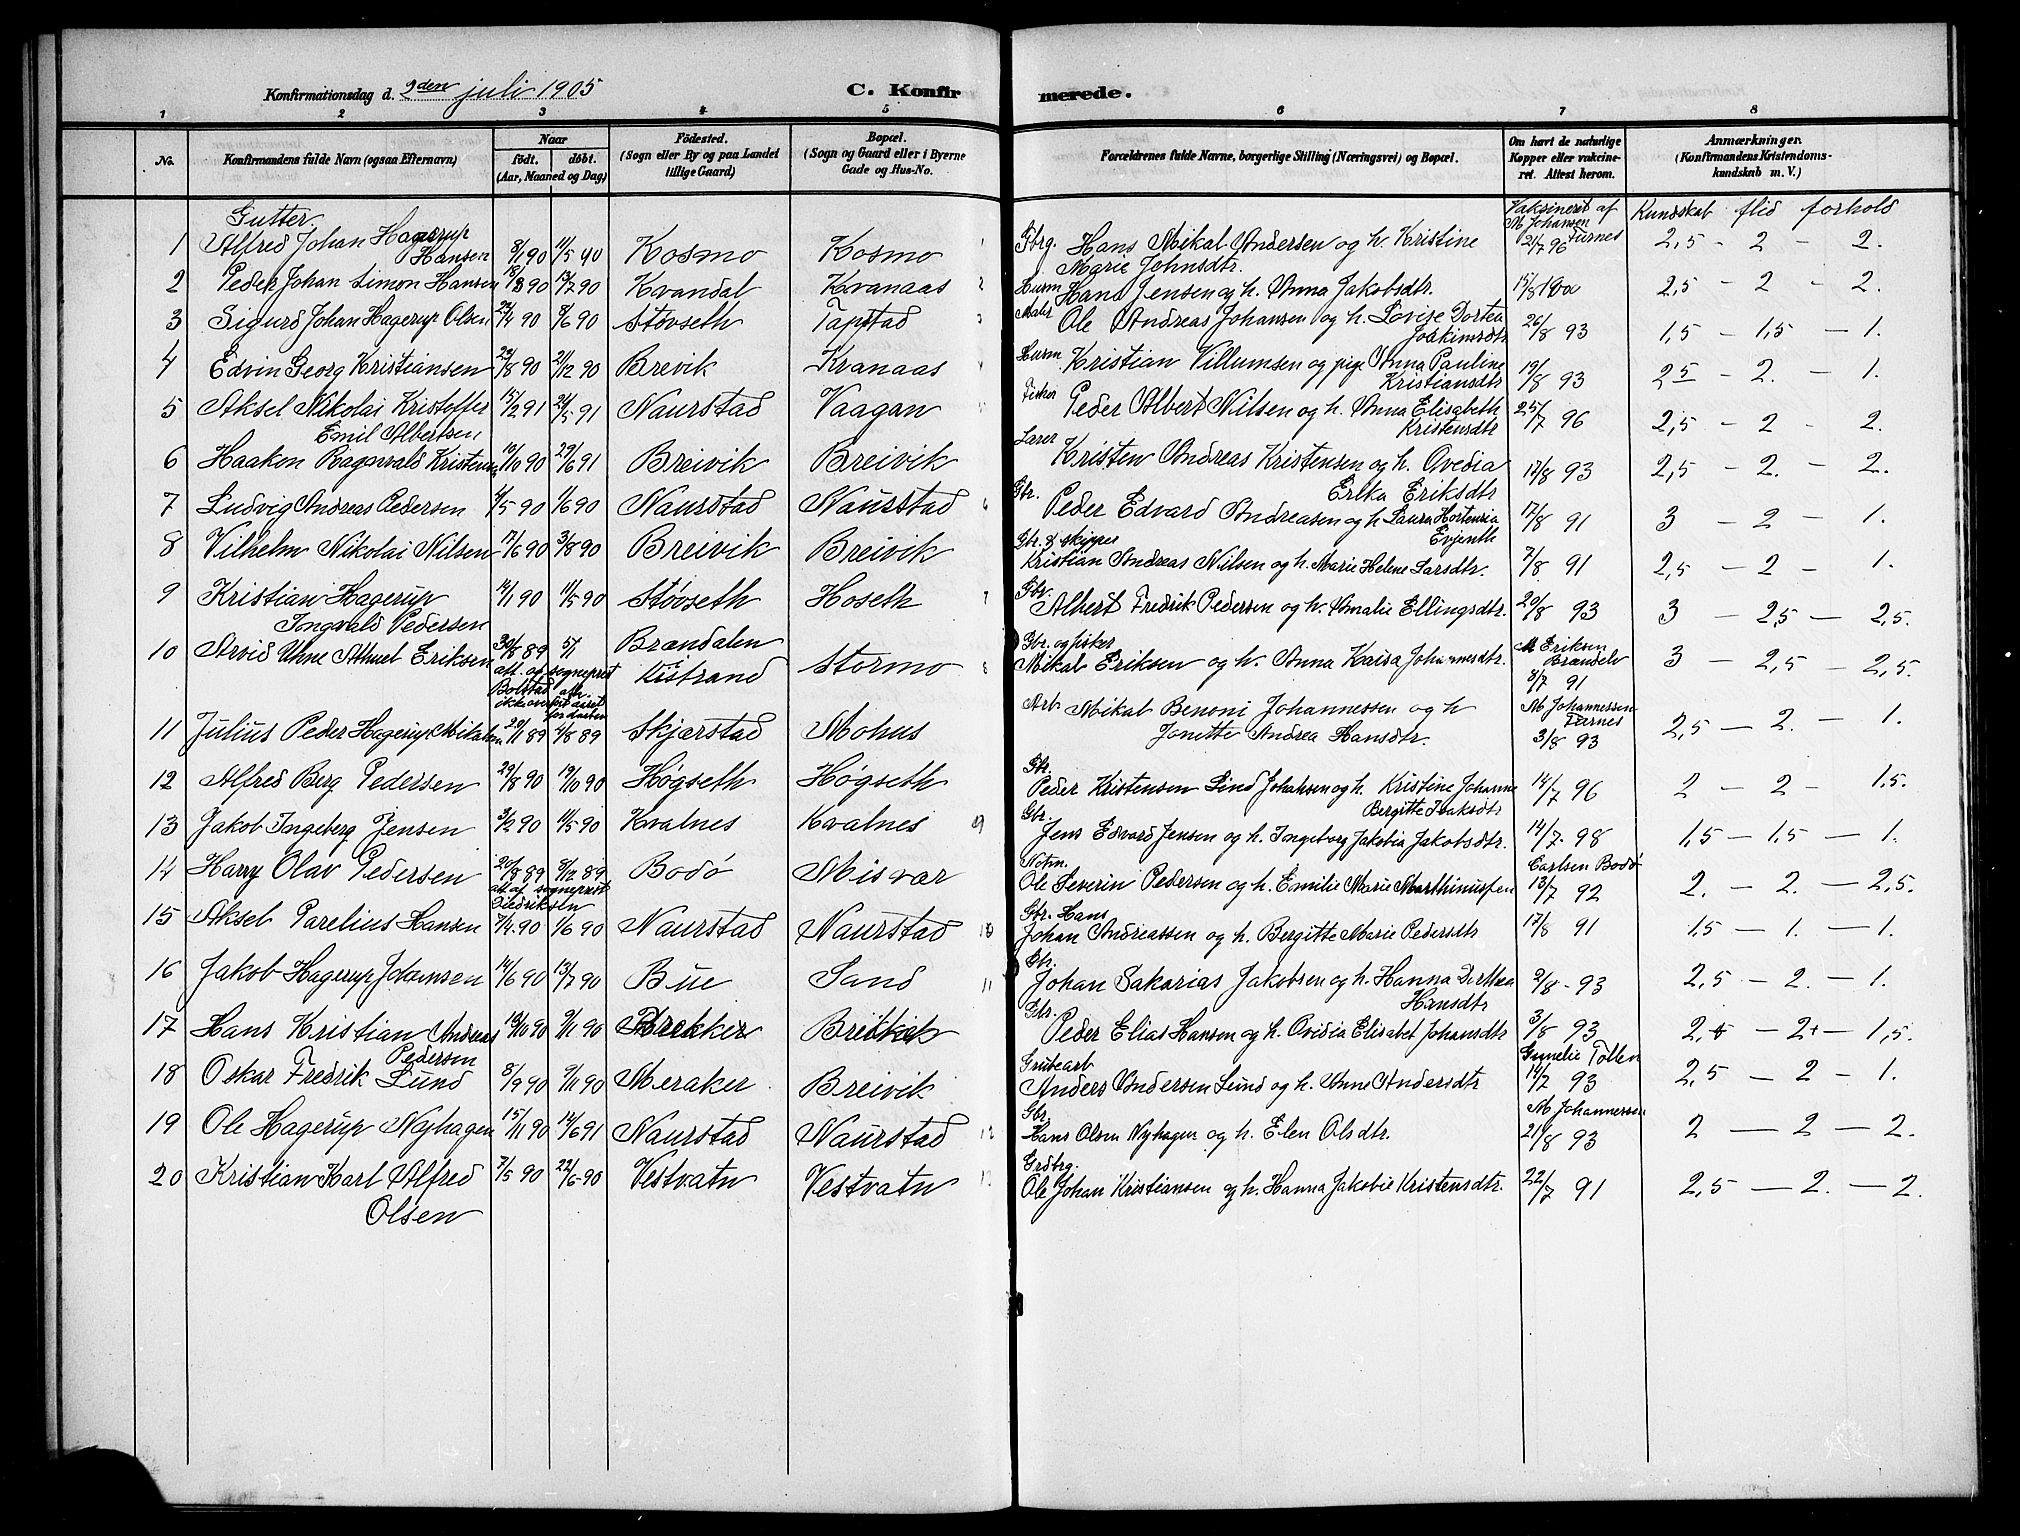 Konfirmationsdag d. 2den juli 1905
C. Konfirmerede.
1 2 3 4 5 6 7 8
No.
Konfirmandens fulde Navn (ogsaa Efternavn)
Naar födt. döbt. (Aar, Maaned og Dag)
Födested. (Sogn eller By og paa Landet tillige Gaard)
Bopæl. (Sogn og Gaard eller i Byerne Gade og Hus-No.
Forældrenes fulde Navne, borgerlige Stilling (Næringsvei) og Bopæl.
Om havt de naturlige Kopper eller vakcineret. Attest herom.
Anmærkninger. (Konfirmandens Kristendomskundskab m. V.)
Gutter.
Vaksineret af M Johansen Furnes
Kundskab flid forhold
1 Alfred Johan Hagerup Hansen 8/1 90 11/5 90 Kosmo Kosmo 1 Gbrg. Hans Mikal Andersen og h. Kristine Marie Johnsdtr. 21/7 96 2,5 - 2 - 2.
2 Peder Johan Simon Hansen 18/3 90 13/7 90 Kvandal Kvanaas 2 Husm Hans Jensen og h. Anna Jakobsdtr. 15/8 1900 2,5 - 2 - 2.
3 Sigurd Johan Hagerup Olsen 22/4 90 8/6 90 Støvseth Tapstad 3 Maler Ole Andreas Johansen og h. Lovise Dortea Joakimsdtr 26/8 93 1,5 - 1,5 - 1.
4 Edvin Georg Kristiansen 23/8 90 21/12 90 Breivik Kvanaas 4 Husm. Kristian Villumsen og pige Anna Pauline Kristiansdtr 19/8 93 2 5 - 2. - 1.
5 Aksel Nikolai Kristoffer Emil Albertsen 15/2 91 24/5 91 Naurstad Vaagan Fisker Peder Albert Nilsen og h. Anna Elisabeth Kristensdtr 25/7 96 2,5 - 2 - 2.
6 Haakon Ragnvald Kristensen 10/10 90 29/6 91 Breivik Breivik Lærer Kristen Andreas Kristensen og h. Ovedia Erika Eriksdtr 17/8 93 2,5 - 2. - 2.
7 Ludvig Andreas Pedersen 4/5 90 1/6 90 Naurstad Naurstad 6 Gbr. Peder Edvard Andreasen og h Laura Hortensia Evjenth 17/8 91 3 - 2 - 1.
8 Vilhelm Nikolai Nilsen 17/6 90 3/8 90 Breivik Breivik Gbr. & skipper Kristian Andreas Nilsen og h. Marie Helene Larsdtr. 7/8 91 2,5 - 2 - 1.
9 Kristian Hagerup Ingvald Pedersen 14/1 90 11/5 90 Støvseth Hoseth 7 Gbr. Albert Fredrik Pedersen og h. Amalie Ellingsdtr. 20/8 93 3 - 2,5 - 2,5.
10 Arvid Uhne Eriksen 30/8 89 Brændalen Kistrand Stormo 8 Gbr. og fisker Mikal Eriksen og h. Anna Kaisa Johannesdtr. M Eriksen Brændelv 8/7 91 3 - 2,5 - 2,5.
att. af sogneprest Bolstad
11 Julius Peder Hagerup Mikalsen 20/1 89 4/8 89 Skjærstad Mohus Arb Mikal Benoni Johannessen og h Jonette Andrea Hansdtr. M Johannessen Furnes 3/8 93 2,5 - 2. - 1.
12 Alfred Berg Pedersen 29/8 90 19/10 90 Høgseth Høgseth Gbr. Peder Kristensen Lind Johansen og h. Kristine Johanne Bergitte Isaksdtr 14/7 96 2 - 2 - 1,5.
13 Jakob Ingeberg Jensen 3/2 90 11/5 90 Kvalnes Kvalnes 9 Gbr. Jens Edvard Jensen og h. Ingeborg Jakobia Jakobsdtr. 14/7 98 1,5 - 1,5 - 1.
14 Harry Olav Pedersen 20/8 89 8/12 89 Bodø Misvær Ole Severin Pedersen og h. Emilie Marie Marthinussen Carlsen Bodø 13/7 92 2. - 2. - 2,5.
att af sogneprest
15 Aksel Parelius Hansen 7/4 90 1/6 90 Naurstad Naurstad 10 Gbr. Hans Johan Andreassen og h. Bergitte Marie Pedersdtr 17/8 91 1,5 - 1. - 1.
16 Jakob Hagerup Johansen 14/6 90 13/7 90 Bue Sand 11 Gbr. Johan Sakarias Jakobsen og h. Hanna Dorthea Hansdtr 2/8 - 93 2,5 - 2. - 1.
17 Hans Kristian Andreas Pedersen 10/10 90 9/11 90 Brekke Breivik Gbr. Peder Elias Hansen og h. Ovidia Elisabet Johansdtr 3/8 93 - 2+ - 1,5.
18 Oskar Fredrik Lund 8/9 90 9/11 90 Meraker Breivik Grubearb Anders Andersen Lund og h. Anne Andersdtr 14/7 93 2,5 - 2 - 1.
19 Ole Hagerup Nyhagen 15/11 90 14/6 91 Naurstad Naurstad 12 Gbr. Hans Olsen Nyhagen og h. Elen Olsdtr. M Johannessen 21/8 93 2 - 2 - 2.
20 Kristian Karl Alfred Olsen 7/5 90 22/6 90 Vestvatn Vestvatn 13 Grdbrg. Ole Johan Kristiansen og h. Hanna Jakobie Kristensdtr. 22/7 91 2,5 - 2. - 2.